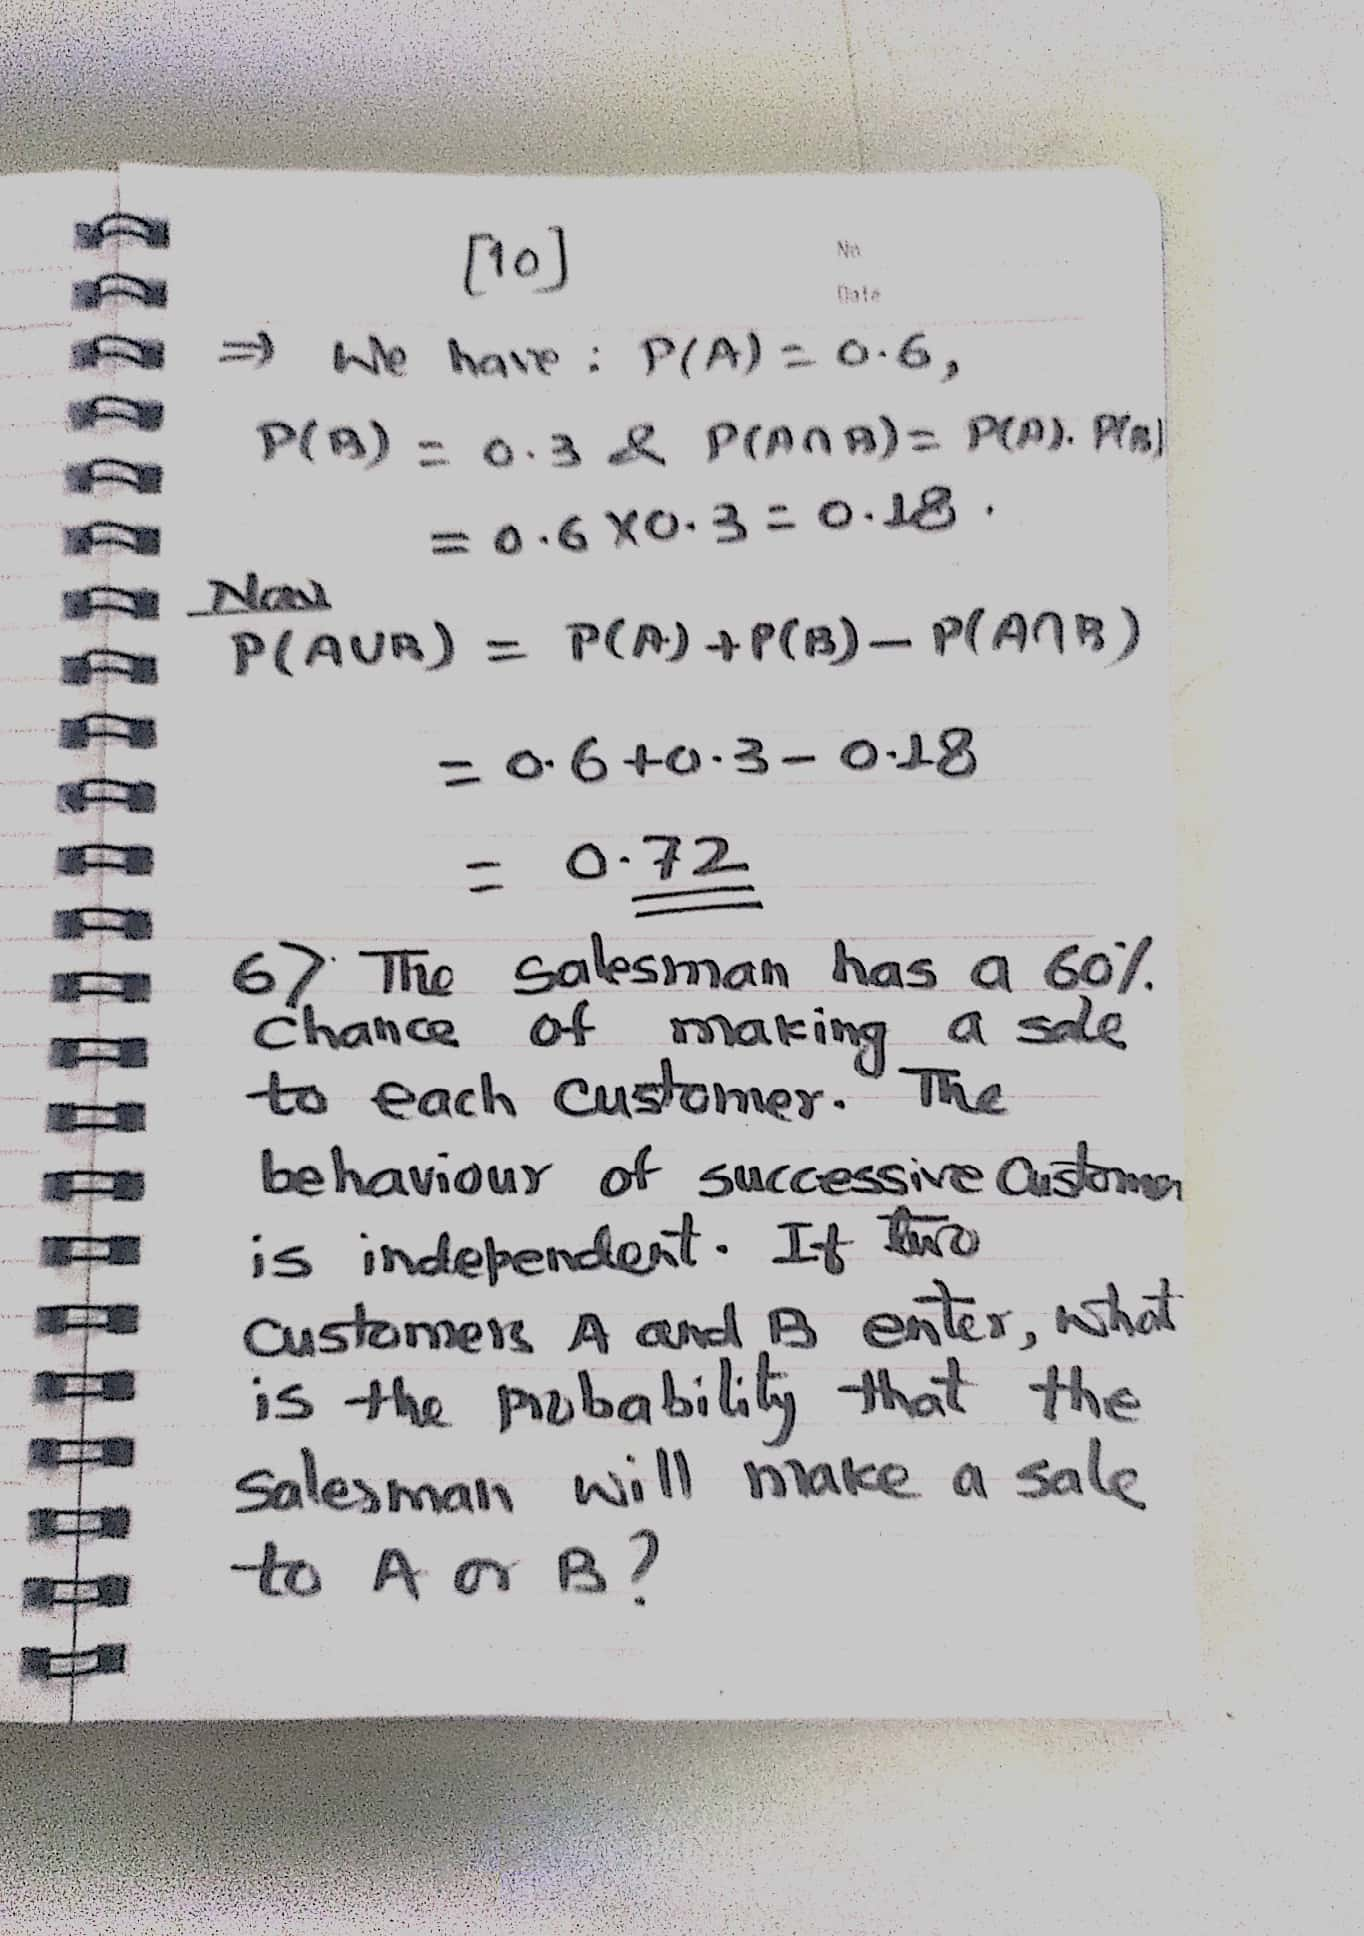 [10]
No.
Date
⇒ We have : P(A) = 0.6,
P(B) = 0.3 & P(A∩B) = P(A). P(B)
= 0.6 X 0.3 = 0.18 .
Now
P(AUB) = P(A) + P(B) – P(A∩B)
= 0.6 + 0.3 – 0.18
= 0.72
6) The salesman has a 60%.
chance of making a sale
to each customer. The
behaviour of successive Customer
is independent. If two
customers A and B enter, what
is the probability that the
salesman will make a sale
to A or B?